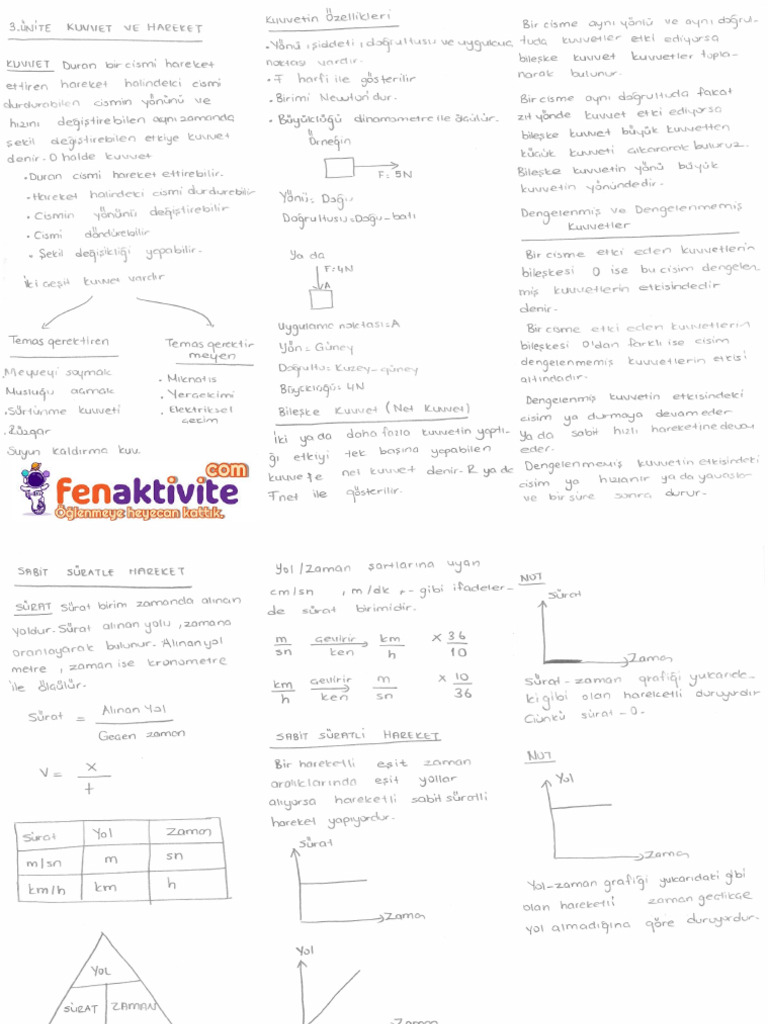 3.ÜNİTE KUVVET VE HAREKET
KUVVET Duran bir cismi hareket
ettiren hareket halindeki cismi
durdurabilen cismin yönünü ve
hızını değiştirebilen aynı zamanda
şekil değiştirebilen etkiye kuvvet
denir. O halde kuvvet
• Duran cismi hareket ettirebilir.
• Hareket halindeki cismi durdurebilir
• Cismin yönünü değiştirebilir
• Cismi döndürebilir
• Şekil değişikliği yapabilir.
İki çeşit kuvvet vardır
Temas gerektiren
.Meyveyi soymak
Musluğu açmak
• Sürtünme kuvveti
. Rüzgar
Suyun kaldırma kuv.
Temas gerektir
meyen
• Mıknatıs
• Yerçekimi
• Elektriksel
çekim
fenaktivite
com
Öğlenmeye heyecan kattık.
Kuvvetin Özellikleri
• Yönü, şiddeti, doğrultusu ve uygulama
noktası vardır.
• F harfi ile gösterilir
• Birimi Newton'dur.
• Büyüklüğü dinamometre ile ölçülür.
Örneğin
F: 5N
Yönü= Doğu
Doğrultusu=Doğu-batı
Ya da
F:4N
A
Uygulama noktası=A
Yön= Güney
Doğrultu= Kuzey-güney
Büyüklüğü= 4N
Bileşke Kuvvet (Net Kuvvet)
İki ya da daha fazla kuvvetin yaptı-
ğı etkiyi tek başına yapabilen
kuvvete net kuvvet denir. R ya de
Fnet ile gösterilir.
Bir cisme aynı yönlü ve aynı doğrul-
tuda kuvvetler etki ediyorsa
bileşke kuvvet kuvvetler topla-
narak bulunur.
Bir cisme aynı doğrultuda fakat
zıt yönde kuvvet etki ediyorsa
bileşke kuvvet büyük kuvvetten
küçük kuvveti çıkararak buluruz.
Bileşke kuvvetin yönü büyük
kuvvetin yönündedir.
Dengelenmiş ve Dengelenmemiş
Kuvvetler
Bir cisme etki eden kuvvetlerin
bileşkesi 0 ise bu cisim dengelen
miş kuvvetlerin etkisindedir
denir.
Bir cisme etki eden kuvvetlerin
bileşkesi 0'dan farklı ise cisim
dengelenmemiş kuvvetlerin etkisi
altındadır.
Dengelenmiş kuvvetin etkisindeki
cisim ya durmaya devam eder
Ya da sabit hızlı hareketine devam
eder.
Dengelenmemiş kuvvetin etkisindeki
cisim ya hızlanır ya da yavaşlar
ve bir süre sonra durur.
SABİT SÜRATLE HAREKET
SÜRAT Sürat birim zamanda alınan
yoldur. Sürat alınan yolu, zamana
oranlayarak bulunur. Alınan yol
metre, zaman ise kronometre
ile ölçülür.
Sürat = Alınan Yol
Geçen zaman
V = X
t
Sürat Yol Zaman
m/sn m sn
km/h km h
YOL
SÜRAT ZAMAN
Yol/Zaman şartlarına uyan
cm/sn , m/dk ,- gibi ifadeler-
de sürat birimidir.
m/sn Çevirir ken km/h x 36/10
km/h Çevirir ken m/sn x 10/36
SABİT SÜRATLİ HAREKET
Bir hareketli eşit zaman
aralıklarında eşit yollar
alıyorsa hareketli sabit süratli
hareket yapıyordur.
Sürat
Zaman
Yol
Zaman
NOT
Sürat
Zaman
Sürat-zaman grafiği yukarıde-
ki gibi olan hareketli duruyordur
Çünkü sürat-0.
NOT
Yol
Zaman
Yol-zaman grafiği yukarıdaki gibi
olan hareketli zaman geçtikçe
yol almadığına göre duruyordur.